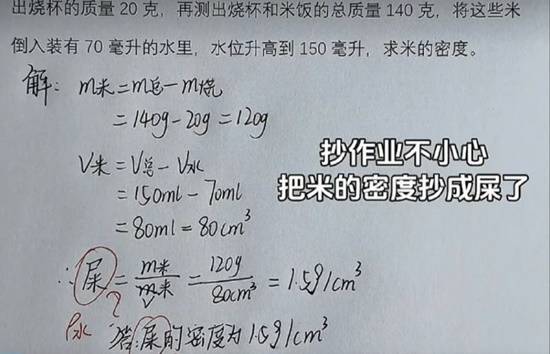 出烧杯的质量 20 克，再测出烧杯和米饭的总质量 140 克，将这些米
倒入装有 70 毫升的水里，水位升高到 150 毫升，求米的密度。
解：m米=m总-m烧
=140g-20g=120g
V米=V总-V水
=150ml-70ml
=80ml=80cm³
抄作业不小心
把米的密度抄成屎了
∴屎=m米/m米V=120g/80cm³=1.5g/cm³
?
ρ水
答:屎的密度为1.5g/cm³